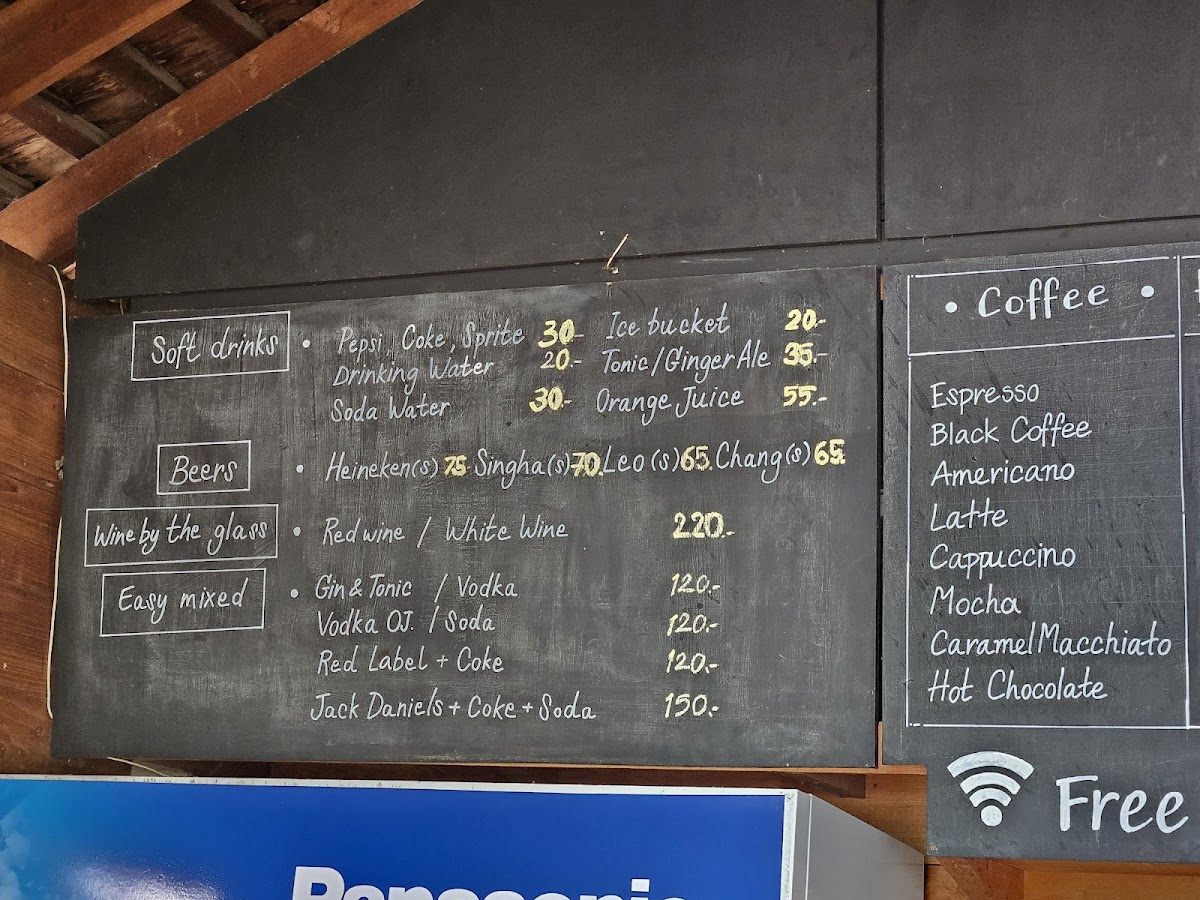 Soft drinks • Pepsi, Coke, Sprite 30.- Ice bucket 20.-
Drinking Water 20.- Tonic/Ginger Ale 35.-
Soda Water 30.- Orange Juice 55.-
Beers • Heineken(s) 75 Singha(s) 70. Leo (s) 65. Chang(s) 65.
Wine by the glass • Red wine / White Wine 220.-
Easy mixed • Gin & Tonic / Vodka 120.-
Vodka OJ. / Soda 120.-
Red Label + Coke 120.-
Jack Daniels + Coke + Soda 150.-
• Coffee •
Espresso
Black Coffee
Americano
Latte
Cappuccino
Mocha
Caramel Macchiato
Hot Chocolate
Free
Panasonic